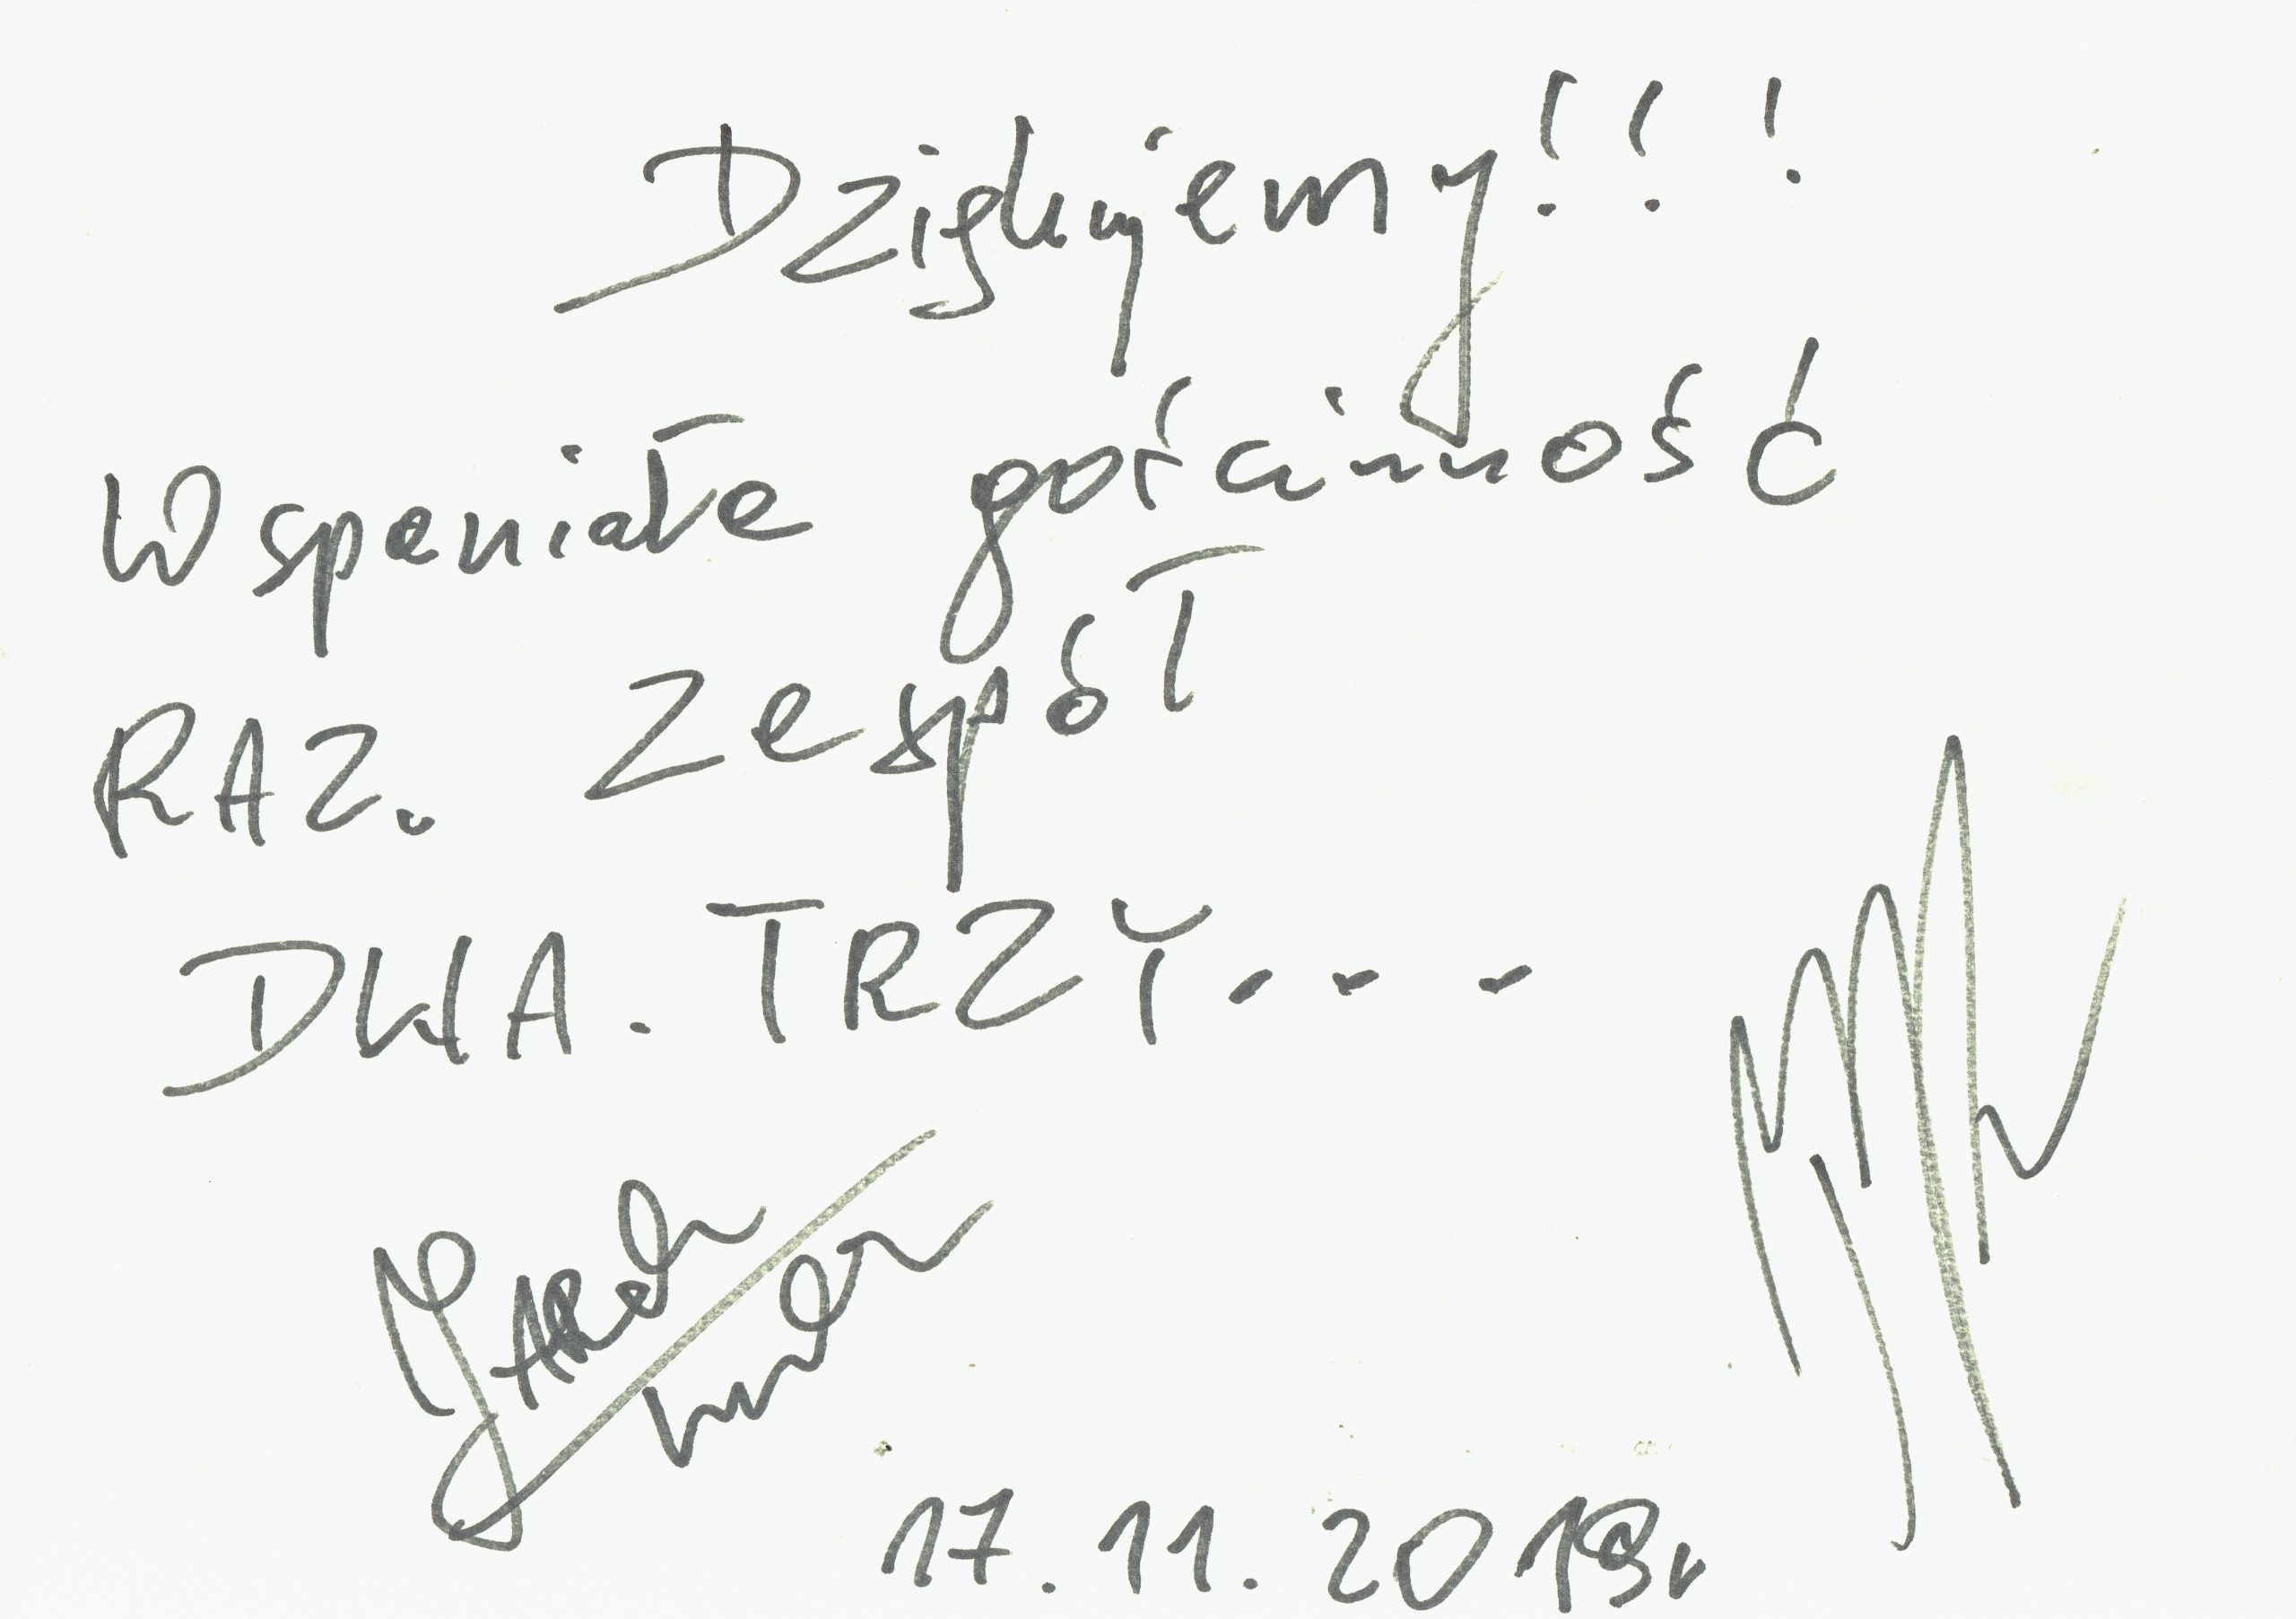 Dziękujemy!!!
Wspaniałe gościnność
Zespół
RAZ.
DWA. TRZY...
17.11.2013r